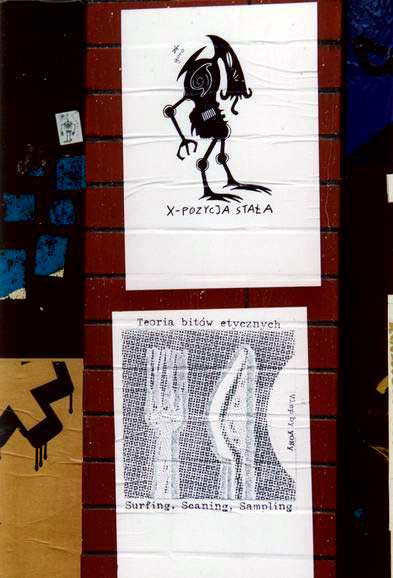 X-POZYCJA STAŁA
Teoria bitów etycznych
Surfing, Scaning, Sampling